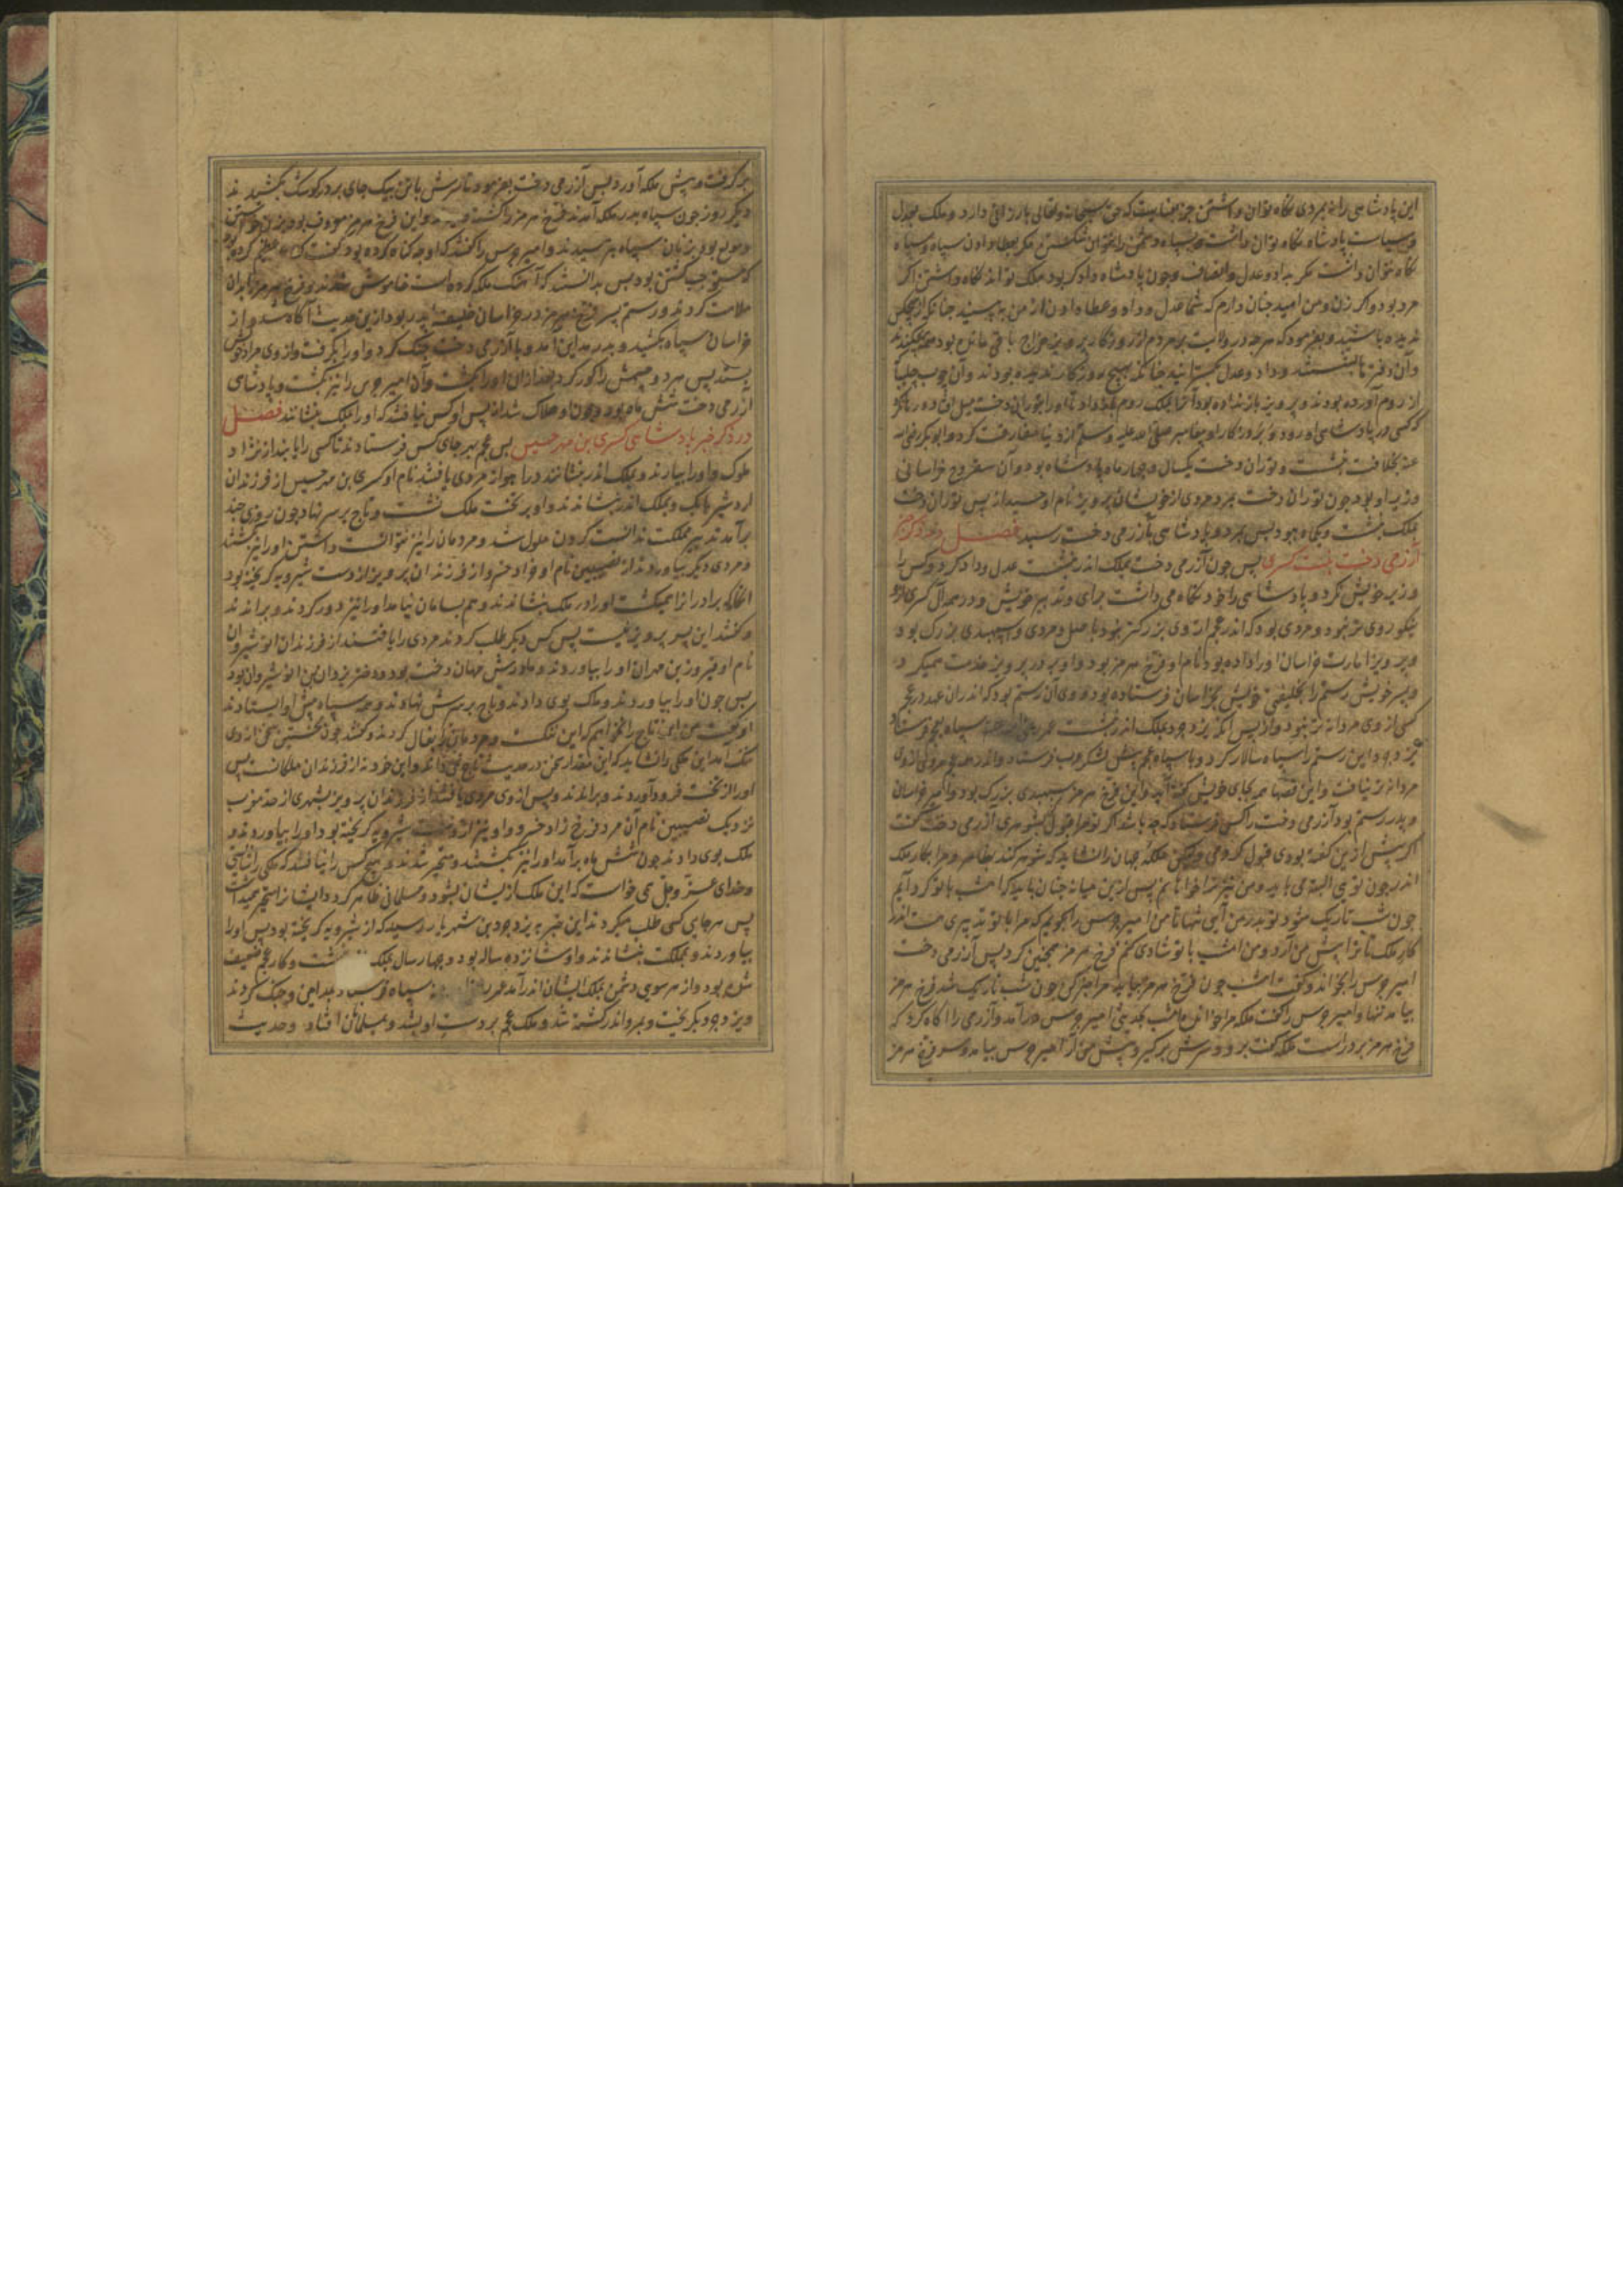 این پادشاهی را نه بمردی نگاه توان داشتن جز بعنایت که حق سبحانه وتعالی بارزانی دارد و ملک بعدل
و سیاست پادشاه نگاه توان داشت و بسپاه دشمن را نتوان شکستن مگر بعطا دادن سپاه و سپاه
نگاه نتوان داشت مگر بداد و عدل و انصاف و چون پادشاه دادگر بود ملک تواند نگاه داشتن اگر
مرد بود و اگر زن و من امید چنان دارم که شما عدل و داد و عطا دادن از من به بینید چنانکه از هیچکس
ندیده باشید و بفرمود که هرچه در ولایت بر مردم از روزگار پرویز خراج باقی مانده بود همه بیفکندند
و آن دفترها بشستند و داد و عدل بگسترانید چنانکه بهیچ روزگار ندیده بودند و آن چوب چلیپا
از روم آورده بودند و پرویز باز نداده بود آنرا بملک روم باز داد تا او را بتوران دخت میل افتاد
که کسی در پادشاهی او بود و بروزگار او پیغامبر صلی الله علیه وسلم از دنیا مفارقت کرد و ابوبکر رضی الله
عنه بخلافت نشست و توران دخت یکسال و چهار ماه پادشاه بود و آن سفروخ خراسانی
وزیر او بود چون توران دخت بمرد مردی از خویشان پرویز نام او خشنده از پس توران دخت
بملک نشست و یکماه ببود پس بمرد و پادشاهی بآزرمی دخت رسید فصل در ذکر خبر
آزرمی دخت بنت کسری پس چون آزرمی دخت بملک اندر نشست عدل و داد کرد و کس را
وزیر خویش نکرد و پادشاهی را خود نگاه می داشت برای و تدبیر خویش و در همه آل کسری ازو
نیکو روی تر نبود و مردی بود که اندر عجم از وی بزرگتر نبود باصل و مردی و اسپهبدی بزرگ بود
و پرویز امارت خراسان او را داده بود نام او فرخ هرمز بود و او بر در پرویز خدمت همیکرد
و پسر خویش رستم را بخلیفتی خویش بخراسان فرستاده بود و وی آن رستم بود که اندران عهد در عجم
کسی از وی مردانه تر نبود و از پس آنکه یزدجرد بملک اندر نشست عمر رضی الله عنه سپاه بعجم فرستاد
یزدجرد این رستم را سپاه سالار کرد و با سپاه عجم پیش لشکر عرب فرستاد و اندر همه عجم مردی از وی
مردانه تر نیافت و این قصها همه بجای خویش گفته آید و این فرخ هرمز سپهبدی بزرگ بود و امیر خراسان
و پدر رستم بود آزرمی دخت را کس فرستاد که چه باشد اگر تو مرا قبول کنی بشوهری آزرمی دخت گفت
اگر پیش ازین گفته بودی قبول کردمی ولیکن ملکهٔ جهان را نشاید که شوهر کند بظاهر و مرا بکار ملک
اندر چون تویی البته می باید و من نیز ترا خواهانم پس ازین میانه چنان باید که امشب با تو گرد آیم
چون شب تاریک شود تو بدر من آیی تنها تا من امیر حرس را بگویم که مرا با تو تدبیری هست اندر
کار ملک تا ترا پیش من آرد و من امشب با تو شادی کنم فرخ هرمز همچنین کرد پس آزرمی دخت
امیر حرس را بخواند و گفت امشب چون فرخ هرمز بیاید مرا خبر کن چون شب تاریک شد فرخ هرمز
بیامد تنها و امیر حرس را گفت ملکه مرا خوانده امشب بحدیثی امیر حرس درآمد و آزرمی را آگاه کرد که
فرخ هرمز بر در است ملکه گفت برو و سرش برگیر و پیش من آر امیر حرس بیامد و سر فرخ هرمز
برگرفت و پیش ملکه آورد پس آزرمی دخت بفرمود تا سرش با تن بیک جای بر در کوشک بکشیدند
دیگر روز چون سپاه بدر ملکه آمدند فرخ هرمز را کشته دیدند و این فرخ هرمز معروف بود بزن خواستن
و مولع بود بزنان سپاه بپرسیدند و امیر حرس را گفتند که او چه گناه کرده بود گفت گناه عظیم کرد
که مستوجب کشتن بود پس بدانستند که آهنگ ملکه کرده است خاموش شدند و فرخ هرمز را بدان
ملامت کردند و رستم پسر فرخ هرمز در خراسان خلیفهٔ پدر بود ازین حدیث آگاه شد و از
خراسان سپاه بکشید و بدر مداین آمد و با آزرمی دخت جنگ کرد و او را بگرفت و از وی مراد خویش
بستد پس هر دو چشمش را کور کرد بعد از آن او را بکشت و آن امیر حرس را نیز بکشت و پادشاهی
آزرمی دخت شش ماه بود و چون او هلاک شد از پس او کس نیافتند که او را بملک بنشانند فصل
در ذکر خبر پادشاهی کسری بن مهر حسیس پس عجم بهر جای کس فرستادند تا کسی را یابند از نژاد
ملوک و او را بیارند و بملک اندر بنشانند در اهواز مردی یافتند نام او کسری بن مهر حسیس از فرزندان
اردشیر بابک و بملک اندر بنشاندند و او بر تخت ملک نشست و تاج بر سر نهاد چون روزی چند
برآمد تدبیر مملکت ندانست کردن ملول شد و مردمان را نیز نتوانست داشتن او را نیز بکشتند
و مردی دیگر بیاوردند از نصیبین نام او خرزاد خسرو از فرزندان پرویز از دست شیرویه گریخته بود
آنگاه که برادرانرا همیکشت او را در ملک بنشاندند و هم بسامان نیامد او را نیز دور کردند و براندند
و گفتند این پسر پرویز نیست پس کس دیگر طلب کردند مردی را یافتند از فرزندان انوشیروان
نام او فیروز بن مهران او را بیاوردند و مادرش چهان دخت بود و دختر یزدان بن انوشیروان بود
پس چون او را بیاوردند و ملک بوی دادند و تاج بر سرش نهادند و همه سپاه پیش او ایستادند
او گفت من این تاج را نخواهم که این تنگ است مردمان بفال کردند و گفتند چون نخستین سخن از وی
تنگ آمد این ملکی را نشاید که این مقدار سخن در حدیث تاج نمی داند و این خود نه از فرزندان ملکانست پس
او را از تخت فرود آوردند و براندند و پس از وی مردی یافتند از فرزندان پرویز بشهری از حد مغرب
نزدیک نصیبین نام آن مرد فرخ زاد خسرو و او نیز از دست شیرویه گریخته بود او را بیاوردند و
ملک بوی دادند چون شش ماه برآمد او را نیز بکشتند و متحیر شدند و هیچ کس را نیافتند که ملکی را شایستی
و خدای عز و جل می خواست که این ملک از ایشان بشود و مسلمانی ظاهر گردد و ایشانرا متحیر همیداشت
پس هر جایی کسی طلب میکردند این خبر به یزدجرد بن شهریار رسید که از شیرویه گریخته بود پس او را
بیاوردند و بمملکت بنشاندند و او شانزده ساله بود و چهار سال بملک نشست و کار عجم ضعیف
شده بود و از هر سوی دشمن بملک ایشان اندر آمد عمر سپاه فرستاد بمداین و جنگ کردند
و یزدجرد بگریخت و بمرو اندر کشته شد و ملک عجم بر دست او بشد و بمسلمانان افتاد و حدیث